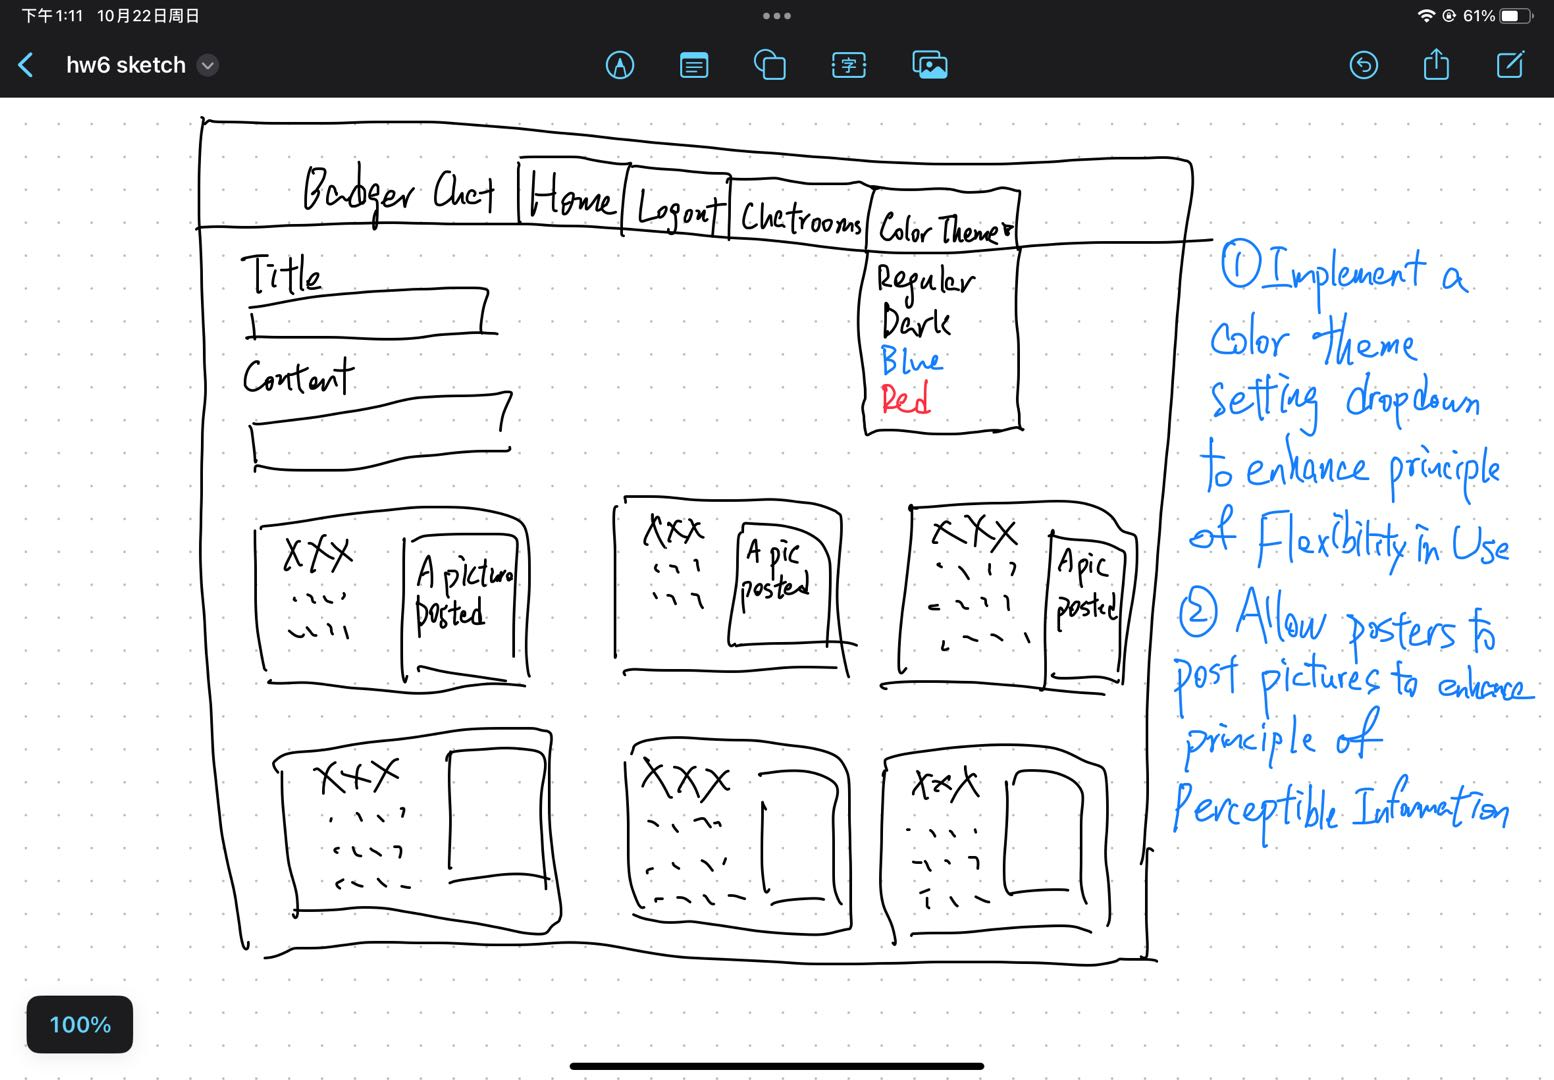 下午1:11 10月22日周日
61%
hw6 sketch
字
Badger Chat Home Logout Chatrooms Color Theme
Title
Regular
Dark
Content
Blue
Red
XXX
A picture
posted
XXX
A pic
posted
XXX
A pic
posted
XXX
XXX
XXX
① Implement a
Color theme
setting dropdown
to enhance principle
of Flexibility in Use
② Allow posters to
post pictures to enhance
principle of
Perceptible Information
100%